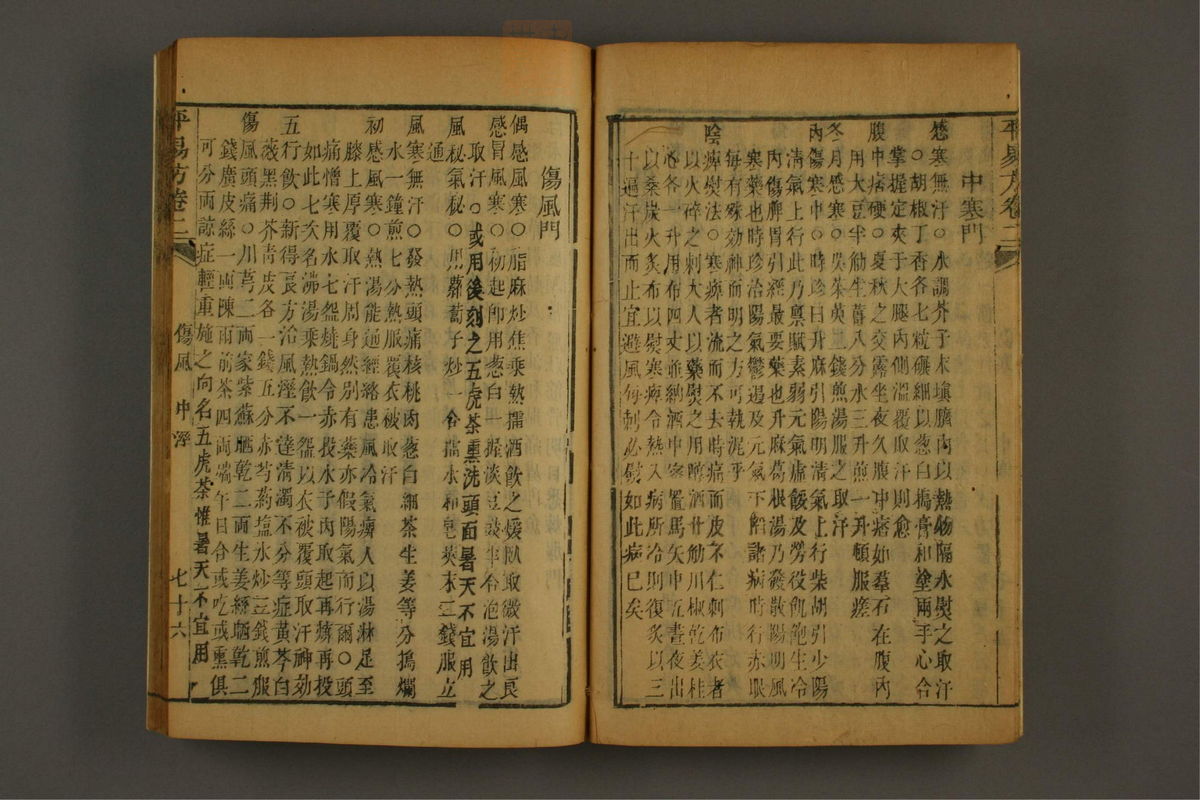 平易方卷二
中寒門
感寒無汗○水調芥子末塡臍內以熱物隔衣熨之取汗
○胡椒丁香各七粒碾細以葱白搗膏和塗兩手心合
掌握定夾于大腿內側溫覆取汗則愈
腹中痞硬○夏秋之交露坐夜久腹中痞如羣石在腹內
用大豆半觔生薑八分水三升煎一升頓服瘥
冬月感寒○吳茱萸 錢煎湯服之取汗
內傷寒中○時珍曰升麻引陽明清氣上行柴胡引少陽
清氣上行此乃禀賦素弱元氣虛餒及勞役飢飽生冷
內傷脾胃引經最要藥也升麻葛根湯乃發散陽明風
寒藥也時珍治陽氣鬱遏及元氣下陷諸病時行赤眼
每有殊効神而明之方可執泥乎
陰痺熨法○寒痺者流而不去時痛而皮不仁刺布衣者
以火焠之刺大人以藥熨之用醇酒廿觔川椒乾姜桂
心各一升用布四丈並納酒中 置馬矢中五晝夜出
以桑炭火炙布以熨寒痺令熱入病所冷則復炙以三
十遍汗出而止宜避風每刺必熨如此病已矣
傷風門
偶感風寒○脂麻炒焦乘熱擂酒飲之煖臥取微汗出良
感冒風寒○初起卽用葱白一握淡豆豉半合泡湯飲之
取汗○或用後刻之五虎茶熏洗頭面暑天不宜用
風秘氣秘○ 蘿蔔子炒一合擂水和皂莢末二錢服立
通
風寒無汗○發熱頭痛核桃肉葱白細茶生姜等分搗爛
水一鐘煎七分熱服覆衣被取汗
初感風寒○熱湯能通經絡患風冷氣痺人以湯淋足至
膝上厚覆取汗周身然別有藥亦假陽氣而行爾○頭
痛憎寒用水七盌燒鍋令赤投水于內取起再燒再投
如此七次名沸湯乘熱飲一盌以衣被覆頭取汗神効
五行飲○新得長方治風溼不達清濁不分等症黃芩白
蔹黑荆芥青皮各一錢五分赤芍藥塩水炒 錢煎服
傷風頭痛○川芎二両家紫蘇晒乾二両生姜絲晒乾二
錢廣皮絲一両陳雨前茶四両端午日合或吃或熏俱
可分両諒症輕重施之向名五虎茶惟暑天不宜用
平易方卷二
傷風 中溼
七十六